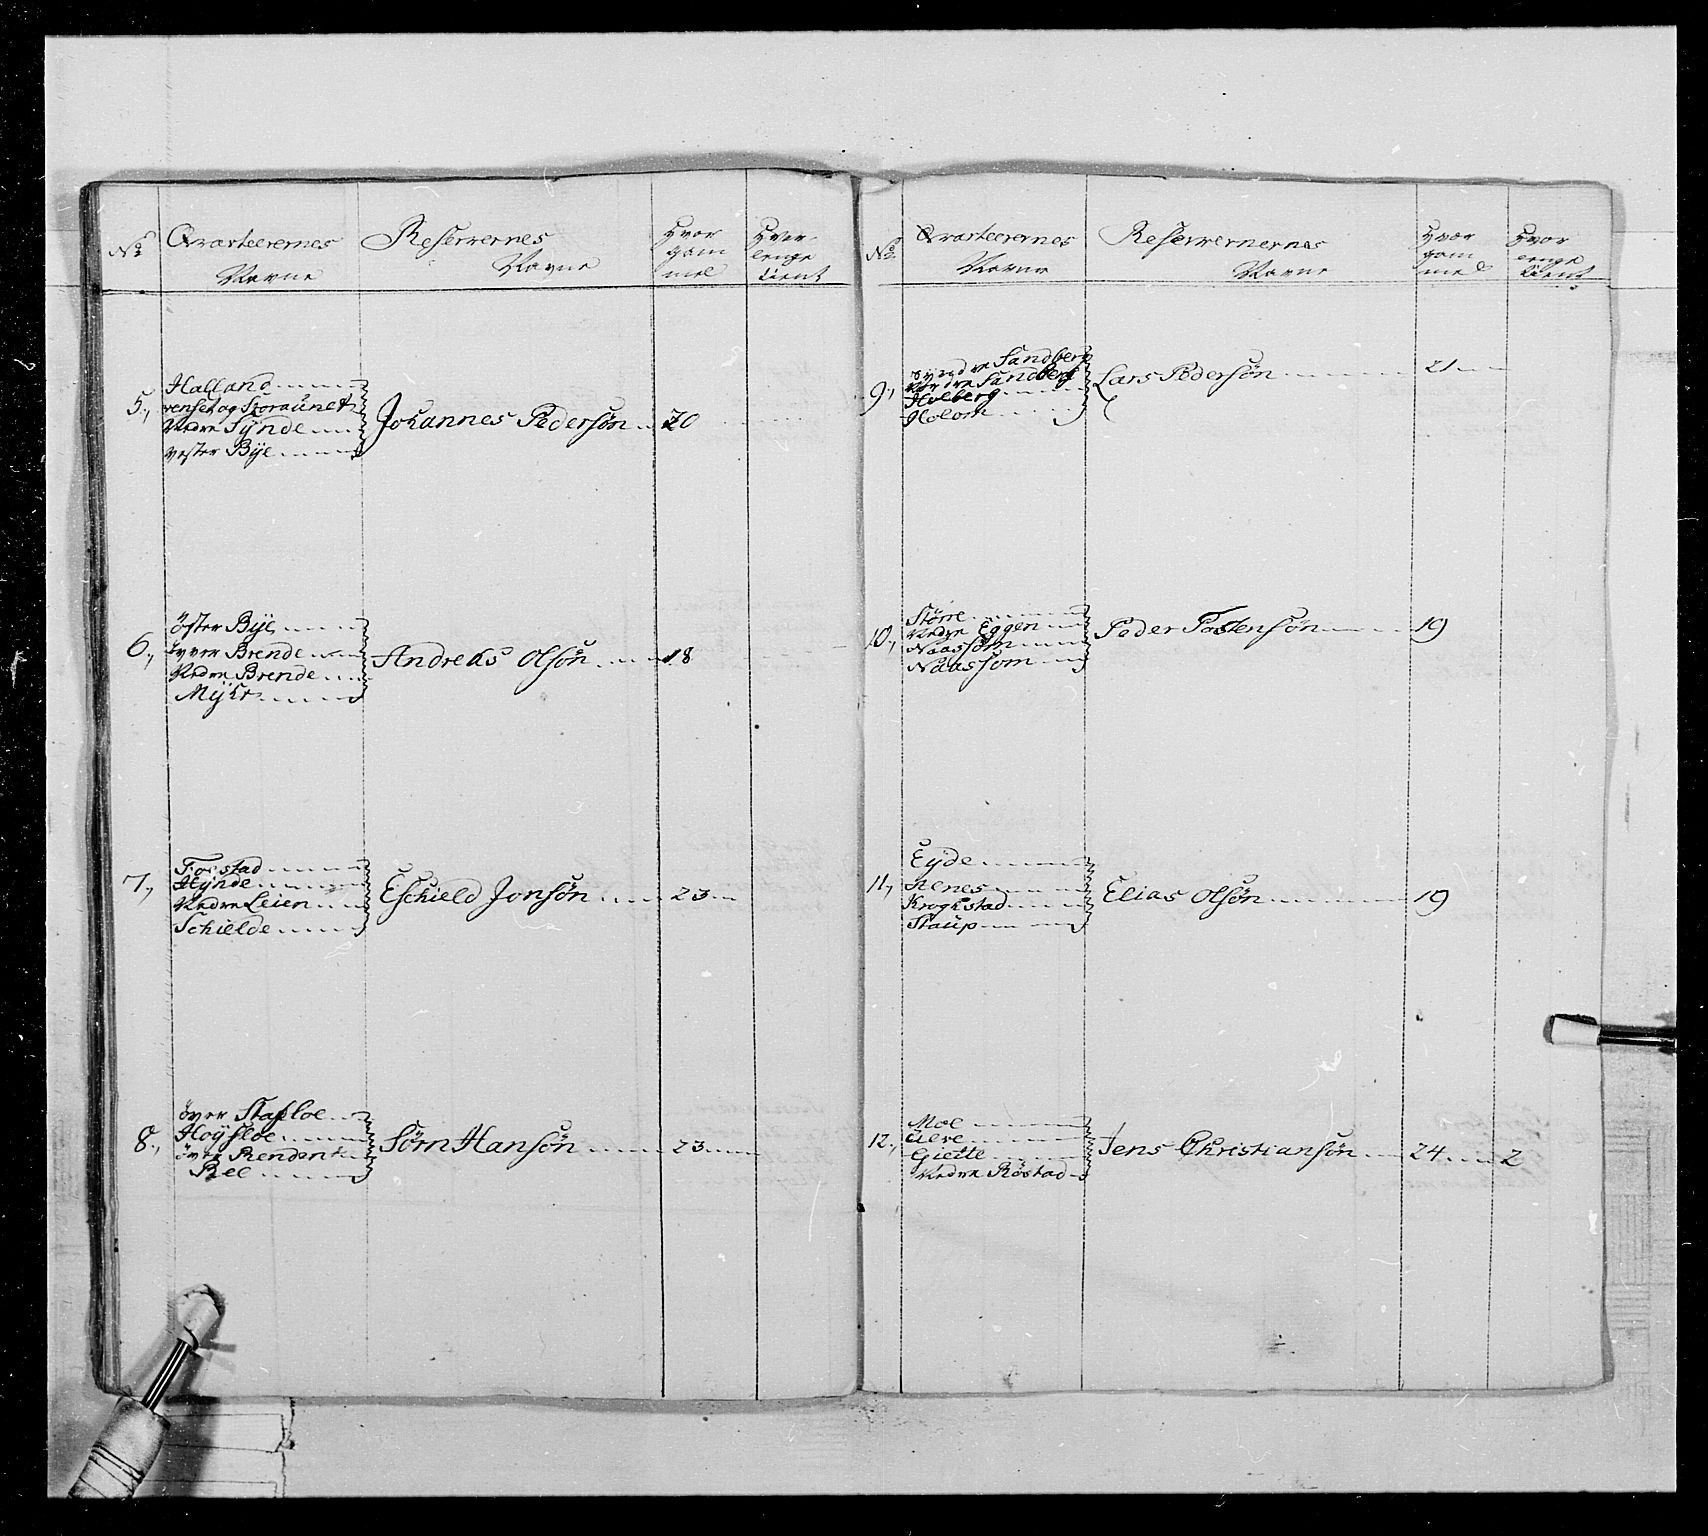 No Qvarteerernes Navne Reserrernes Navne Hvor gam mel Hver lenge tient
5., Halland
venset og Storaunet
Nedre Tÿnde
vester Bÿe
Johannes Pedersøn 20
6., öster Bÿe
över Brende
Nedre Brende
Mÿkr
Andreas Olsøn 18
7., Forstad
Hÿnde
Nedre Leien
Schielde
Eschield Jonsøn 23
8., över Stafloe
Höÿsloe
övre Rendem
Ree
Sörn Hansøn 23
No Qvarteerernes Navne Reserrernernes Navne Hvor gam mel Hvor lenge tient
9., Sandberg
Nedre Sandberg
Holberg
Holom
Lars Pedersøn 21
10., Större
Nedre Eggen
Naassom
Naassom
Peder Tostensøn 19
11., Eÿde
Renes
Krogstad
Staup
Elias Olsøn 19
12., Moe
Uere
Giette
Nedre Röstad
Jens Christiansøn 24 2